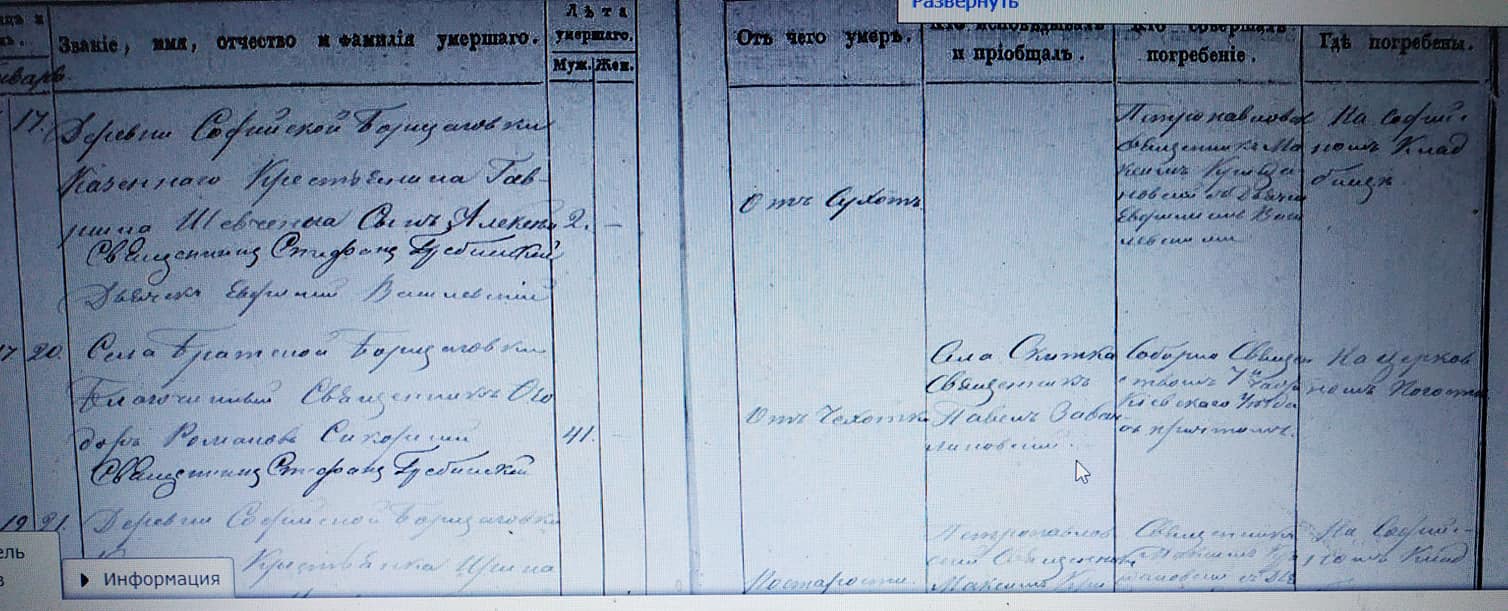 Развернуть
Званіе, имя, отчество и фамилія умершаго.
Лѣта
умершаго.
Муж. Жен.
Отъ чего умеръ.
и пріобщалъ.
погребеніе.
Гдѣ погребены.
17. Деревни Софійской Борщаговки
Казеннаго Крестьянина Гав-
рила Шевченка Сынъ Алексѣй 2. —
Священникъ Стефанъ Гребинскій
Дьячекъ Евфимій Василевскій
Отъ Сухотъ
Петропавловск
Священникъ Ма
ксимъ
новскій съ Дьячк
Евфиміемъ Васи
левскимъ
На Софій-
скомъ Клад
бищѣ
17 20. Села Братской Борщаговки
Благочинный Священникъ Ѳео
доръ Романовъ Сикорскій 41. —
Священникъ Стефанъ Гребинскій
Отъ Чахотки
Села Скитка
Священникъ
Павелъ
Соборно Священ
ствомъ
Кіевскаго Уѣзда
съ причтомъ.
На Церков
номъ Погостѣ
19 21. Деревни Софійской Борщаговки
Крестьянка Ирина
По старости.
Петропавлов
скій Священник
Максимъ
Священникъ
Максимъ
На Софій-
скомъ Клад
Информация